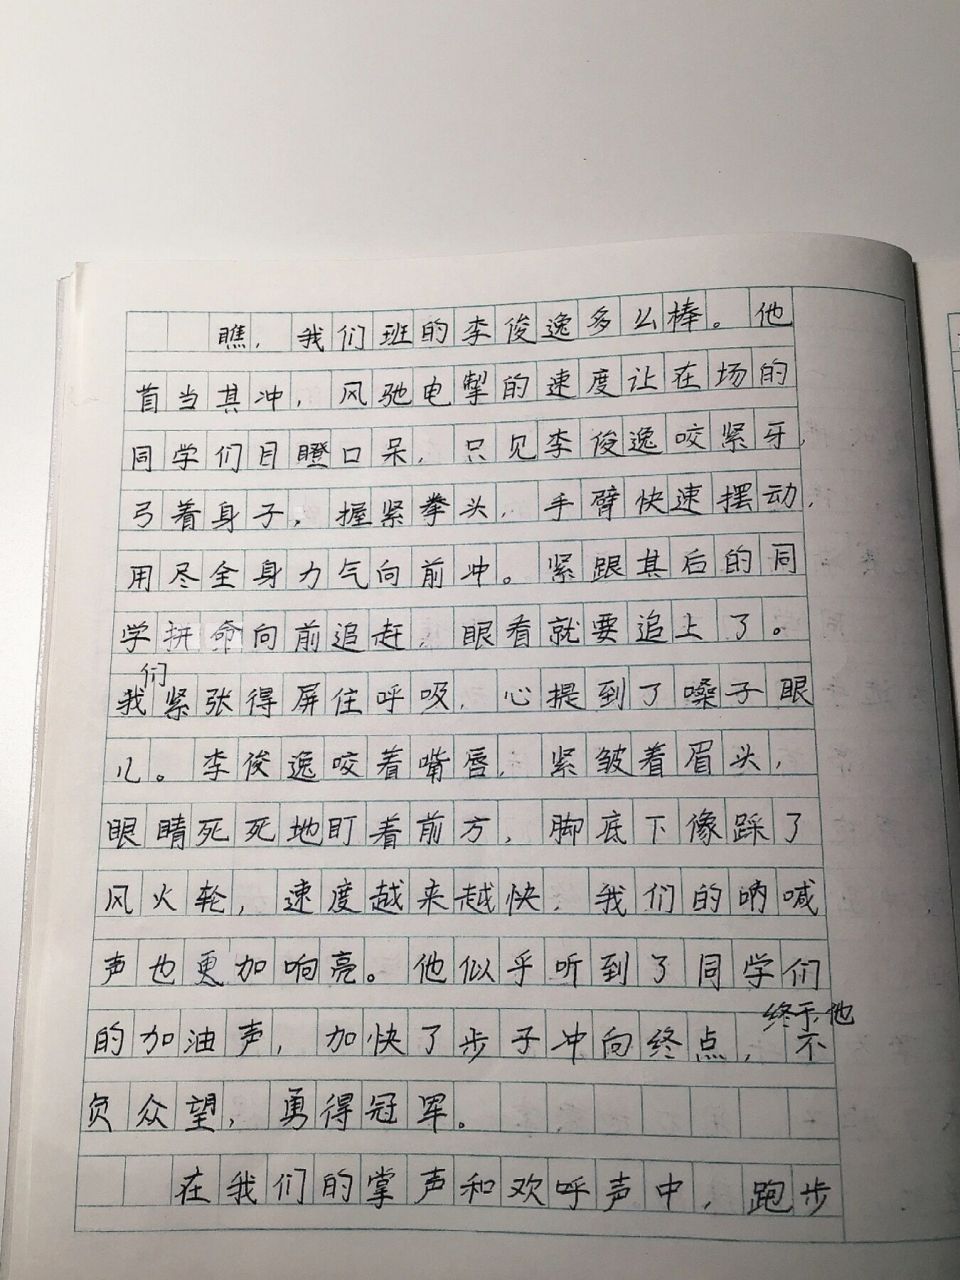 瞧，我们班的李俊逸多么棒。他
首当其冲，风驰电掣的速度让在场的
同学们目瞪口呆，只见李俊逸咬紧牙，
弓着身子，握紧拳头，手臂快速摆动，
用尽全身力气向前冲。紧跟其后的同
学拼命向前追赶，眼看就要追上了。
我们紧张得屏住呼吸，心提到了嗓子眼
儿。李俊逸咬着嘴唇，紧皱着眉头，
眼睛死死地盯着前方，脚底下像踩了
风火轮，速度越来越快，我们的呐喊
声也更加响亮。他似乎听到了同学们
的加油声，加快了步子冲向终点，终于，他不
负众望，勇得冠军。
在我们的掌声和欢呼声中，跑步